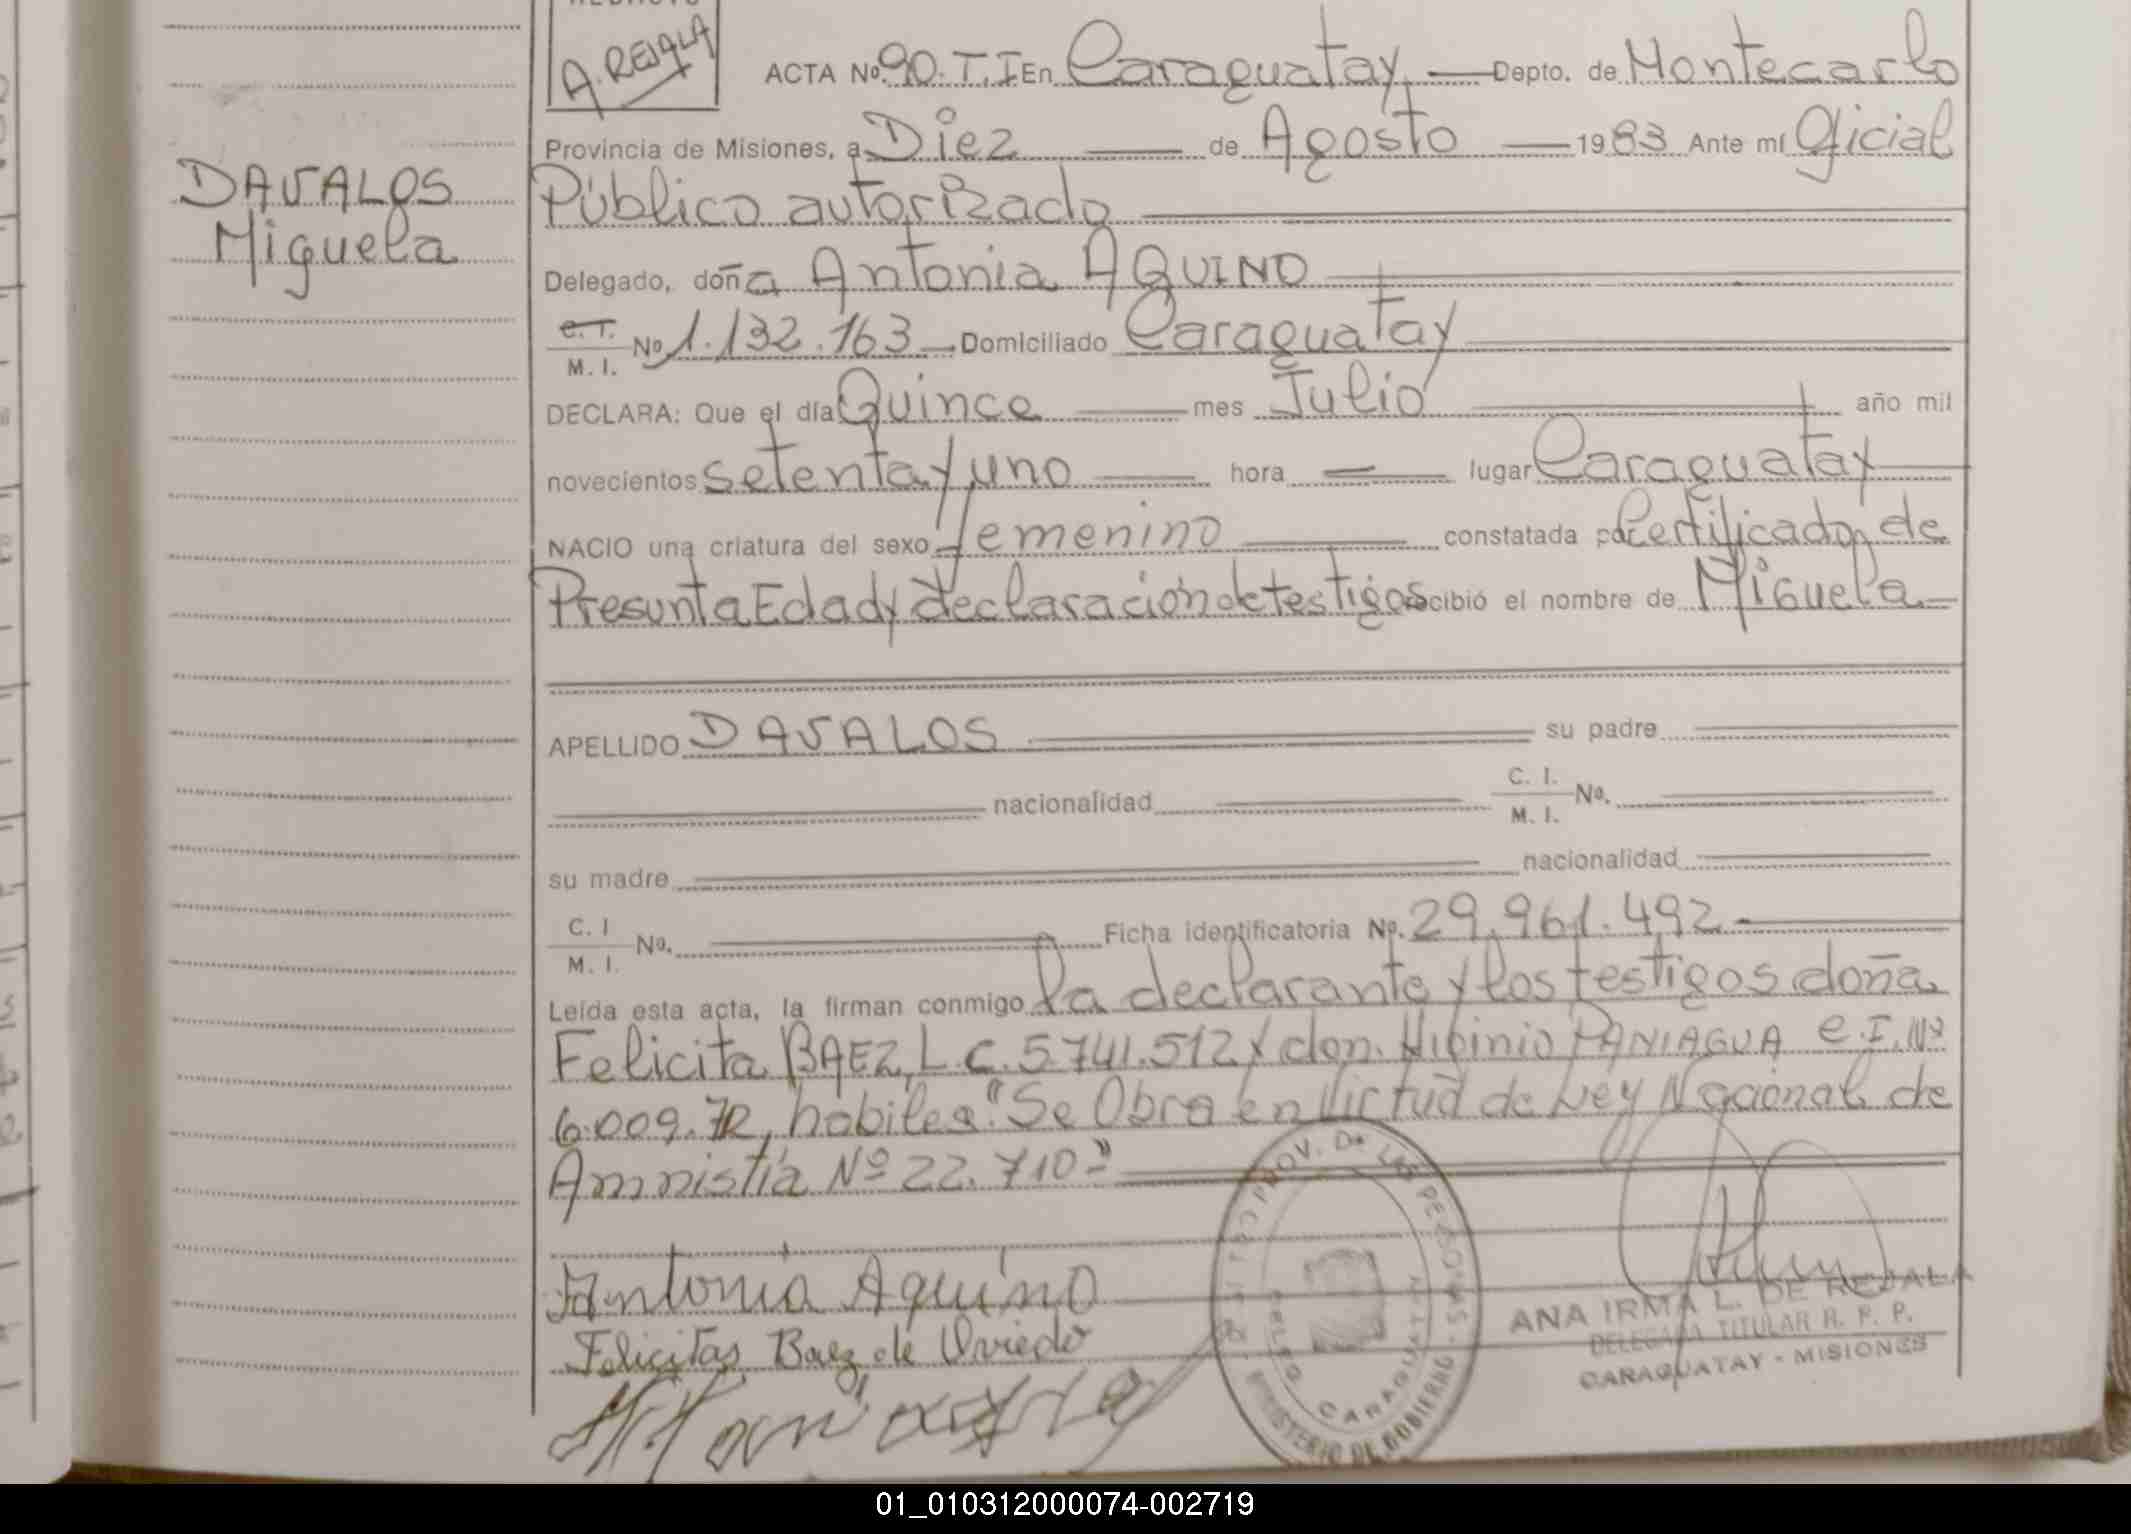 A. REJALA
ACTA Nº. 90. T. I En Caraguatay Depto. de Montecarlo
Provincia de Misiones, a Diez de Agosto 1983 Ante mí Oficial
Público autorizado
DAVALOS
Miguela
Delegado, doña Antonia AQUINO
C. I.
M. I.
Nº 1.132.163 Domiciliado Caraguatay
DECLARA: Que el día Quince mes Julio año mil
novecientos setenta y uno hora lugar Caraguatay
NACIO una criatura del sexo femenino constatada por Certificado de
Presunta Edad y declaración de testigos recibió el nombre de Miguela
APELLIDO DAVALOS su padre
nacionalidad C. I.
M. I. Nº.
su madre nacionalidad
C. I
M. I. Nº. Ficha identificatoria Nº. 29.961.492
Leída esta acta, la firman conmigo la declarante y los testigos doña
Felicita BAEZ, L.C. 5.741.512 y don. Higinio PANIAGUA C.I. Nº
6.009.72, habiles. "Se Obra en Virtud de Ley Nacional de
Amnistía Nº 22.710"
Antonia Aquino
Felicitas Baez de Oviedo
PROV. DE LAS PERSONAS
MINISTERIO DE GOBIERNO
CARAGUATAY
ANA IRMA L. DE REJALA
DELEGADA TITULAR R. P. P.
CARAGUATAY - MISIONES
01_010312000074-002719